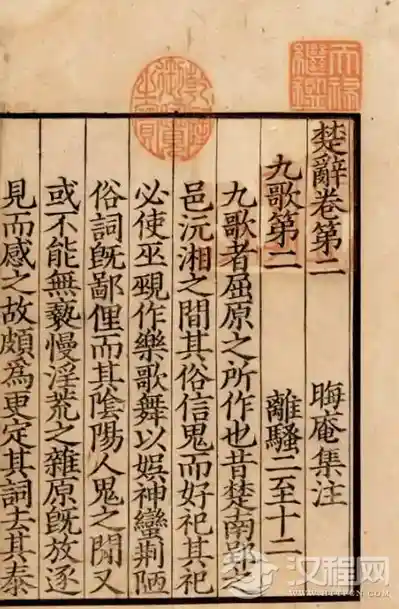 天祿繼鑑
乾隆御覽之寶
楚辭卷第二 晦庵集注
九歌第二 離騷二至十二
九歌者屈原之所作也昔楚南郢之
邑沅湘之間其俗信鬼而好祀其祀
必使巫覡作樂歌舞以娛神蠻荆陋
俗詞旣鄙俚而其陰陽人鬼之間又
或不能無褻慢淫荒之雜原旣放逐
見而感之故頗為更定其詞去其泰
汉程网
HTTPCN.COM